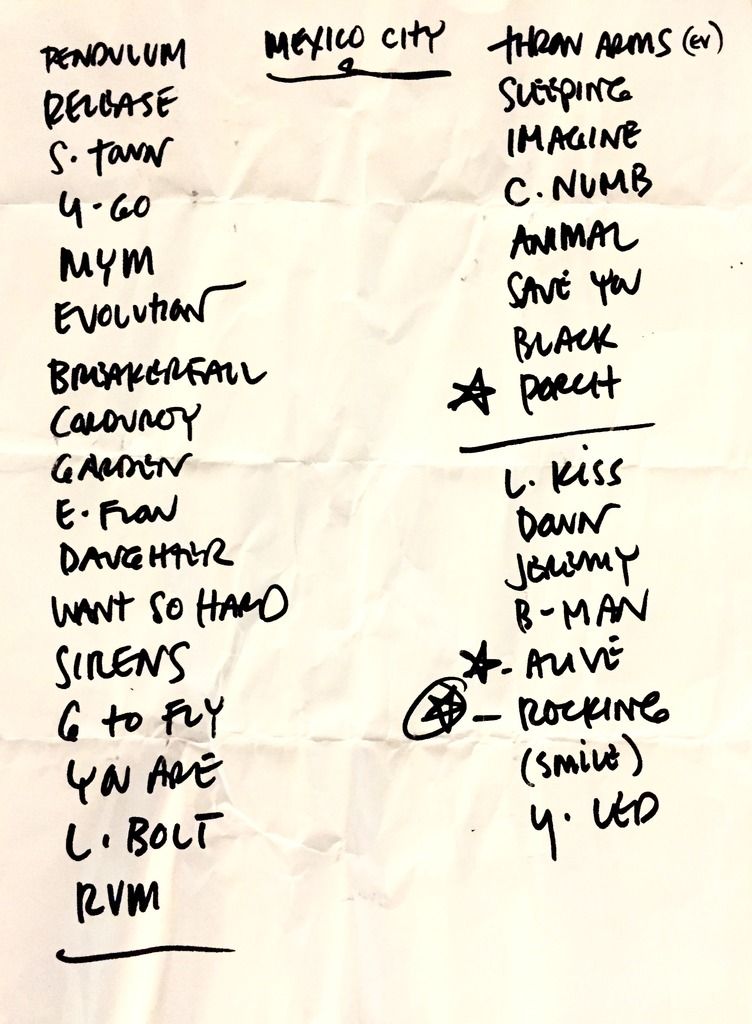 MEXICO CITY
PENDULUM
RELEASE
S. TOWN
U-GO
MYM
EVOLUTION
BREAKERFALL
CORDUROY
GARDEN
E. FLOW
DAUGHTER
WANT SO HARD
SIRENS
G TO FLY
YOU ARE
L. BOLT
RVM
THROW ARMS (EV)
SLEEPING
IMAGINE
C. NUMB
ANIMAL
SAVE YOU
BLACK
PORCH
L. KISS
DOWN
JEREMY
B-MAN
ALIVE
ROCKING
(SMILE)
Y. LED